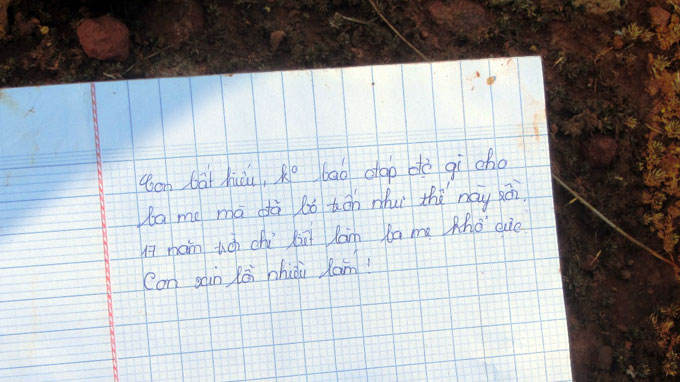 Con bất hiếu, k° báo đáp đc gì cho
ba mẹ mà đã bỏ trốn như thế này rồi.
17 năm trời chỉ biết làm ba mẹ khổ cực
Con xin lỗi nhiều lắm!